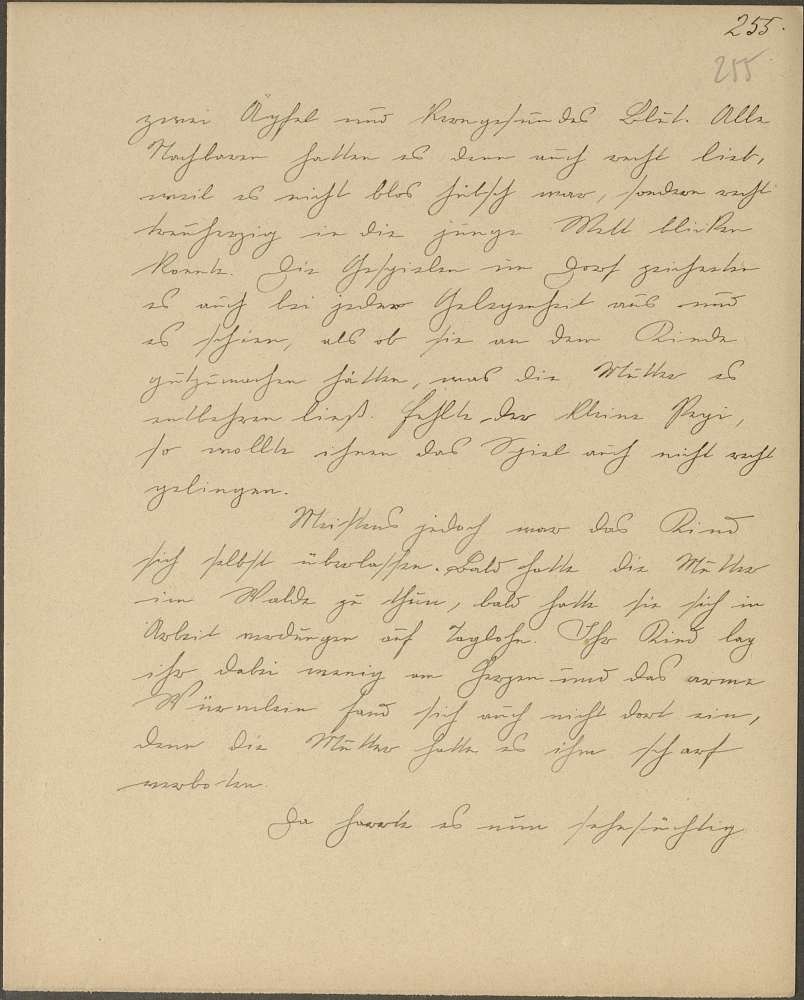 255.
255
zwei Äpfel und kerngesundes Blut. Alle
Nachbaren hatten es denn auch recht lieb,
weil es nicht blos hübsch war, sondern recht
treuherzig in die junge Welt blicken
konnte. Die Gespielen im Dorf zeichneten
es auch bei jeder Gelegenheit aus und
es schien, als ob sie an dem Kinde
gutzumachen hätten, was die Mutter es
entbehren ließ. Fehlte der kleine Pepi,
so wollte ihnen das Spiel auch nicht recht
gelingen.
Meistens jedoch war das Kind
sich selbst überlassen. Bald hatte die Mutter
im Walde zu thun, bald hatte sie sich in
Arbeit verdungen auf Taglohn. Ihr Kind lag
ihr dabei wenig am Herzen und das arme
Würmlein fand sich auch nicht dort ein,
denn die Mutter hatte es ihm scharf
verboten.
Da harrte es nun sehsüchtig